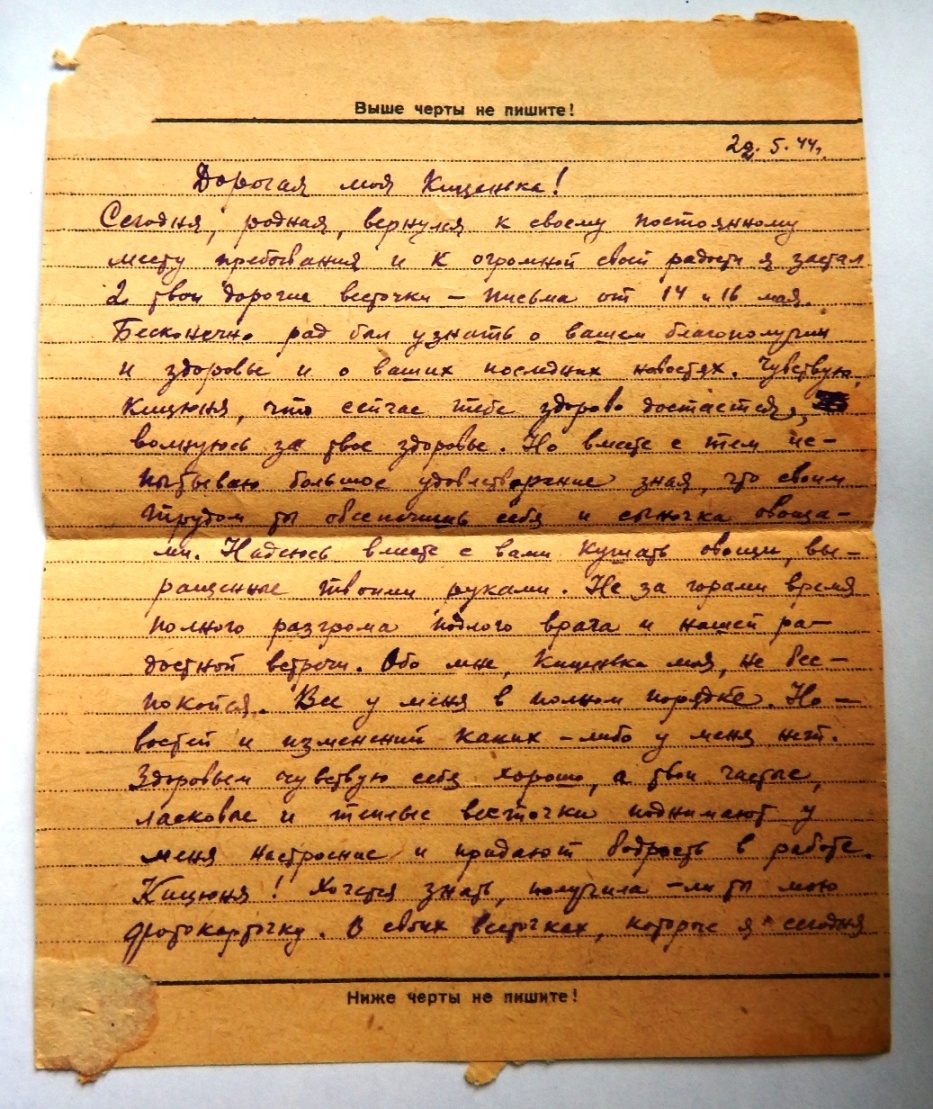 Выше черты не пишите!
22. 5. 44.
Дорогая моя Кицинька!
Сегодня, родная, вернулся к своему постоянному
месту пребывания и к огромной своей радости я застал
2 твои дорогие весточки – письма от 14 и 16 мая.
Бесконечно рад был узнать о вашем благополучии
и здоровье и о ваших последних новостях. Чувствую,
Кицюня, что сейчас тебе здорово достается,
волнуюсь за твое здоровье. Но вместе с тем ис-
пытываю большое удовлетворение зная, что своим
трудом ты обеспечишь себя и сыночка овоща-
ми. Надеюсь вместе с вами кушать овощи, вы-
ращенные твоими руками. Не за горами время
полного разгрома подлого врага и нашей ра-
достной встречи. Обо мне, Кицинька моя, не бес-
покойся. Все у меня в полном порядке. Но-
востей и изменений каких-либо у меня нет.
Здоровьем чувствую себя хорошо, а твои частые,
ласковые и теплые весточки поднимают у
меня настроение и придают бодрость в работе.
Кицюня! Хочется знать, получила-ли ты мою
фотокарточку. В своих весточках, которые я сегодня
Ниже черты не пишите!